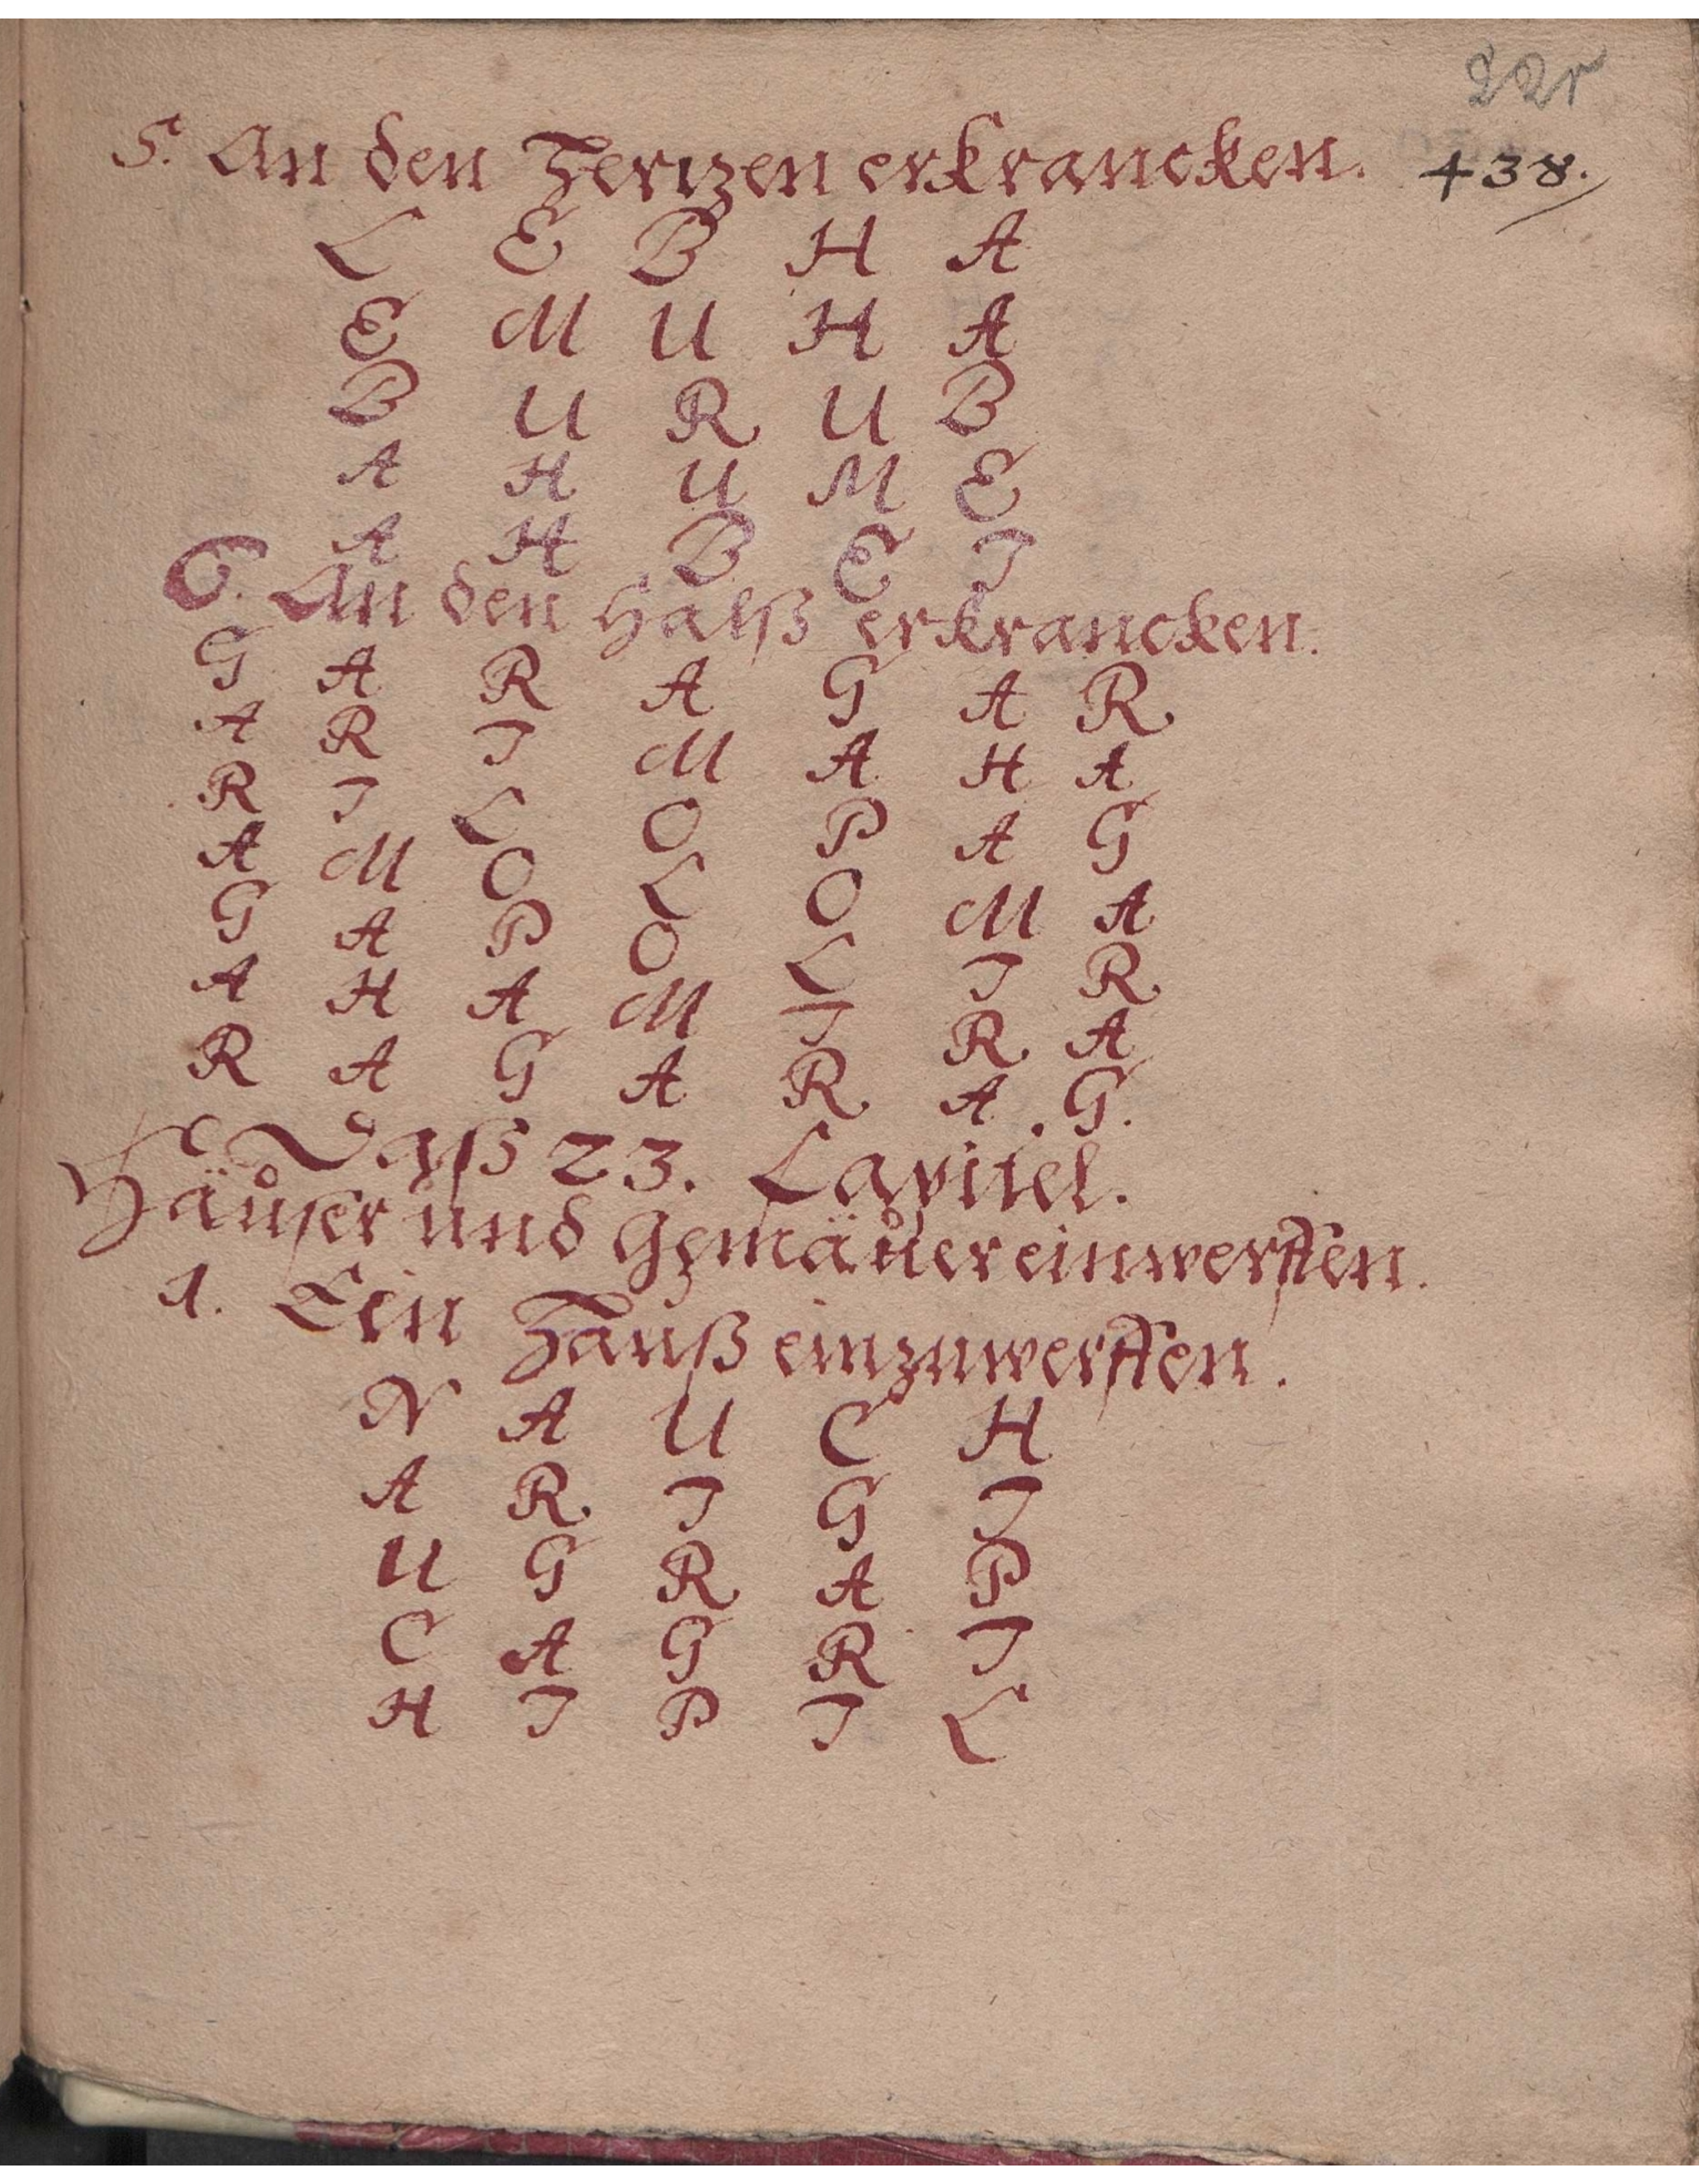 22r
5. An den Hertzen erkrancken. 438.
L E B H A
E M U H A
B U R U B
A H U M E
A H B E I
6. An den Halß erkrancken.
G A R A G A R
A R I M A H A
R I L O P A G
A M O L O M A
G A P O L I R
A H A M I R A
R A G A R A . G.
Daß 23. Capitel.
Häuser und Gemäuer einwerffen.
1. Ein Hauß einzuwerffen.
N A U C H
A R I G I
U G R A P
C A G R I
H I P I L